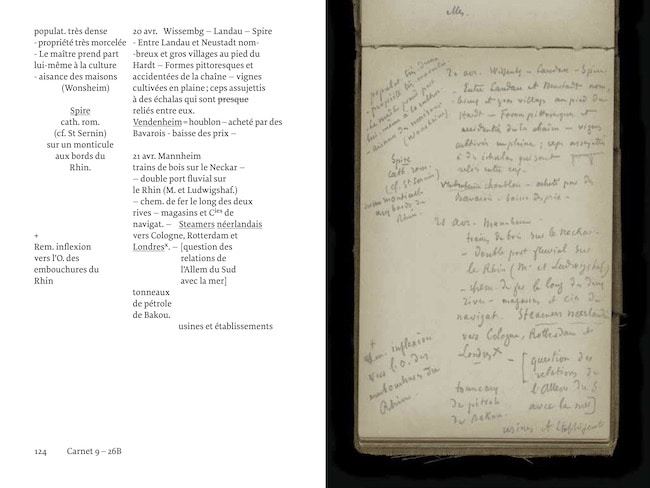 populat. très dense
- propriété très morcelée
- Le maître prend part
lui-même à la culture
- aisance des maisons
(Wonsheim)
Spire
cath. rom.
(cf. St Sernin)
sur un monticule
aux bords du
Rhin.
+
Rem. inflexion
vers l'O. des
embouchures du
Rhin
20 avr. Wissembg – Landau – Spire
- Entre Landau et Neustadt nom-
-breux et gros villages au pied du
Hardt – Formes pittoresques et
accidentées de la chaîne – vignes
cultivées en plaine ; ceps assujettis
à des échalas qui sont presque
reliés entre eux.
Vendenheim = houblon – acheté par des
Bavarois - baisse des prix –
21 avr. Mannheim
trains de bois sur le Neckar –
– double port fluvial sur
le Rhin (M. et Ludwigshaf.)
– chem. de fer le long des deux
rives – magasins et Cies de
navigat. – Steamers néerlandais
vers Cologne, Rotterdam et
Londresx. – [question des
relations de
l'Allem du Sud
avec la mer]
tonneaux
de pétrole
de Bakou.
usines et établissements
124 Carnet 9 – 26B
populat. très dense
- propriété très morcelée
- Le maître prend part
lui-même à la culture
- aisance des maisons
(Wonsheim)
Spire
cath. rom.
(cf. St Sernin)
sur un monticule
aux bords du
Rhin.
+
Rem. inflexion
vers l'O. des
embouchures du
Rhin
20 avr. Wissembg – Landau – Spire
Entre Landau et Neustadt nom-
breux et gros villages au pied du
Hardt – Formes pittoresques et
accidentées de la chaîne – vignes
cultivées en plaine ; ceps assujettis
à des échalas qui sont presque
reliés entre eux.
Vendenheim = houblon – acheté par des
Bavarois - baisse des prix –
21 avr. Mannheim
trains de bois sur le Neckar –
– double port fluvial sur
le Rhin (M. et Ludwigshaf)
– chem. de fer le long des deux
rives – magasins et Cies de
navigat. Steamers néerlandais
vers Cologne, Rotterdam et
Londresx – [question des
relations de
l'Allem du S.
avec la mer]
tonneaux
de pétrole
de Bakou.
usines et établissements